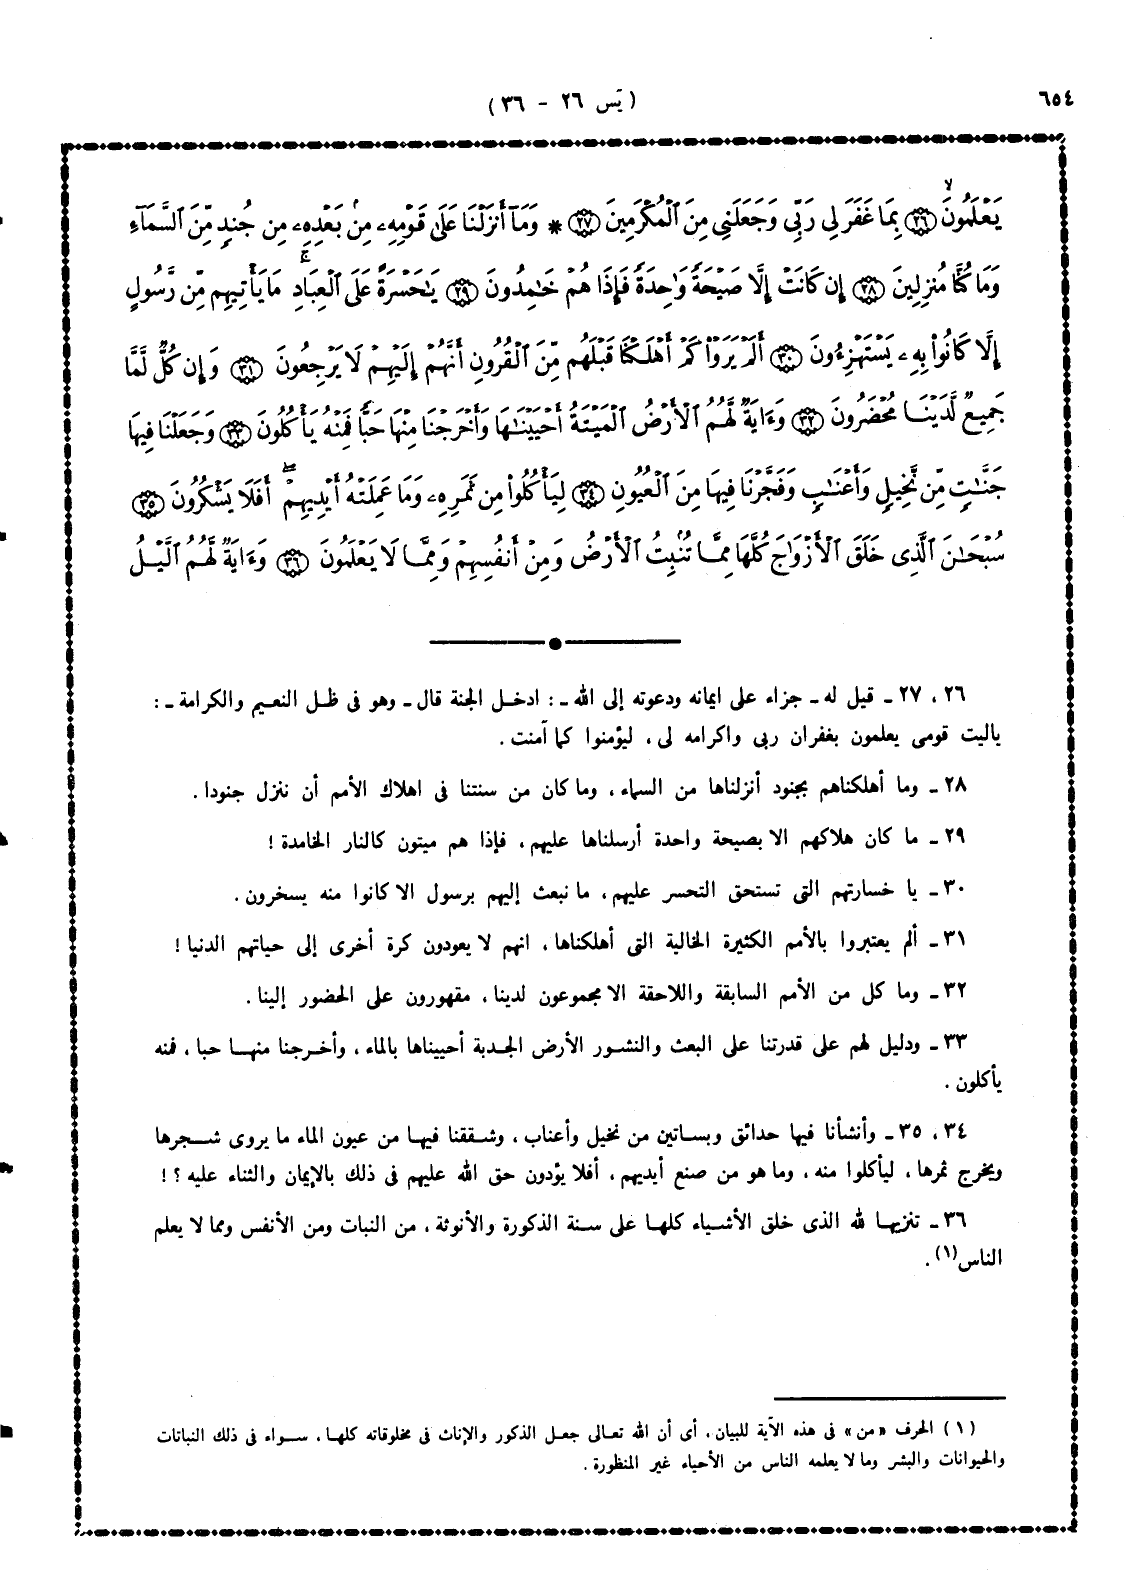 ٦٥٤
( يٓس ٢٦ - ٣٦ )
يَعْلَمُونَ ﴿٢٦﴾ بِمَا غَفَرَ لِى رَبِّى وَجَعَلَنِى مِنَ ٱلْمُكْرَمِينَ ﴿٢٧﴾ * وَمَآ أَنزَلْنَا عَلَىٰ قَوْمِهِۦ مِنۢ بَعْدِهِۦ مِن جُندٍ مِّنَ ٱلسَّمَآءِ
وَمَا كُنَّا مُنزِلِينَ ﴿٢٨﴾ إِن كَانَتْ إِلَّا صَيْحَةً وَٰحِدَةً فَإِذَا هُمْ خَٰمِدُونَ ﴿٢٩﴾ يَٰحَسْرَةً عَلَى ٱلْعِبَادِ ۚ مَا يَأْتِيهِم مِّن رَّسُولٍ
إِلَّا كَانُوا۟ بِهِۦ يَسْتَهْزِءُونَ ﴿٣٠﴾ أَلَمْ يَرَوْا۟ كَمْ أَهْلَكْنَا قَبْلَهُم مِّنَ ٱلْقُرُونِ أَنَّهُمْ إِلَيْهِمْ لَا يَرْجِعُونَ ﴿٣١﴾ وَإِن كُلٌّ لَّمَّا
جَمِيعٌ لَّدَيْنَا مُحْضَرُونَ ﴿٣٢﴾ وَءَايَةٌ لَّهُمُ ٱلْأَرْضُ ٱلْمَيْتَةُ أَحْيَيْنَٰهَا وَأَخْرَجْنَا مِنْهَا حَبًّا فَمِنْهُ يَأْكُلُونَ ﴿٣٣﴾ وَجَعَلْنَا فِيهَا
جَنَّٰتٍ مِّن نَّخِيلٍ وَأَعْنَٰبٍ وَفَجَّرْنَا فِيهَا مِنَ ٱلْعُيُونِ ﴿٣٤﴾ لِيَأْكُلُوا۟ مِن ثَمَرِهِۦ وَمَا عَمِلَتْهُ أَيْدِيهِمْ ۖ أَفَلَا يَشْكُرُونَ ﴿٣٥﴾
سُبْحَٰنَ ٱلَّذِى خَلَقَ ٱلْأَزْوَٰجَ كُلَّهَا مِمَّا تُنۢبِتُ ٱلْأَرْضُ وَمِنْ أَنفُسِهِمْ وَمِمَّا لَا يَعْلَمُونَ ﴿٣٦﴾ وَءَايَةٌ لَّهُمُ ٱلَّيْلُ
٢٦ ، ٢٧ ـ قيل له ـ جزاء على ايمانه ودعوته إلى الله ـ : ادخل الجنة قال ـ وهو فى ظل النعيم والكرامة ـ :
ياليت قومى يعلمون بغفران ربى واكرامه لى ، ليؤمنوا كما آمنت .
٢٨ ـ وما أهلكناهم بجنود أنزلناها من السماء ، وما كان من سنتنا فى اهلاك الأمم أن ننزل جنودا .
٢٩ ـ ما كان هلاكهم الا بصيحة واحدة أرسلناها عليهم ، فإذا هم ميتون كالنار الخامدة !
٣٠ ـ يا خسارتهم التى تستحق التحسر عليهم ، ما نبعث إليهم برسول الا كانوا منه يسخرون .
٣١ ـ ألم يعتبروا بالأمم الكثيرة الخالية التى أهلكناها ، انهم لا يعودون كرة أخرى إلى حياتهم الدنيا !
٣٢ ـ وما كل من الأمم السابقة واللاحقة الا مجموعون لدينا ، مقهورون على الحضور إلينا .
٣٣ ـ ودليل لهم على قدرتنا على البعث والنشور الأرض الجدبة أحييناها بالماء ، وأخرجنا منها حبا ، فمنه
يأكلون .
٣٤ ، ٣٥ ـ وأنشأنا فيها حدائق وبساتين من نخيل وأعناب ، وشققنا فيها من عيون الماء ما يروى شجرها
ويخرج ثمرها ، ليأكلوا منه ، وما هو من صنع أيديهم ، أفلا يؤدون حق الله عليهم فى ذلك بالإيمان والثناء عليه ؟ !
٣٦ ـ تنزيها لله الذى خلق الأشياء كلها على سنة الذكورة والأنوثة ، من النبات ومن الأنفس ومما لا يعلم
الناس(١) .
( ١ ) الحرف «من» فى هذه الآية للبيان ، أى أن الله تعالى جعل الذكور والإناث فى مخلوقاته كلها ، سواء فى ذلك النباتات
والحيوانات والبشر وما لا يعلمه الناس من الأحياء غير المنظورة .